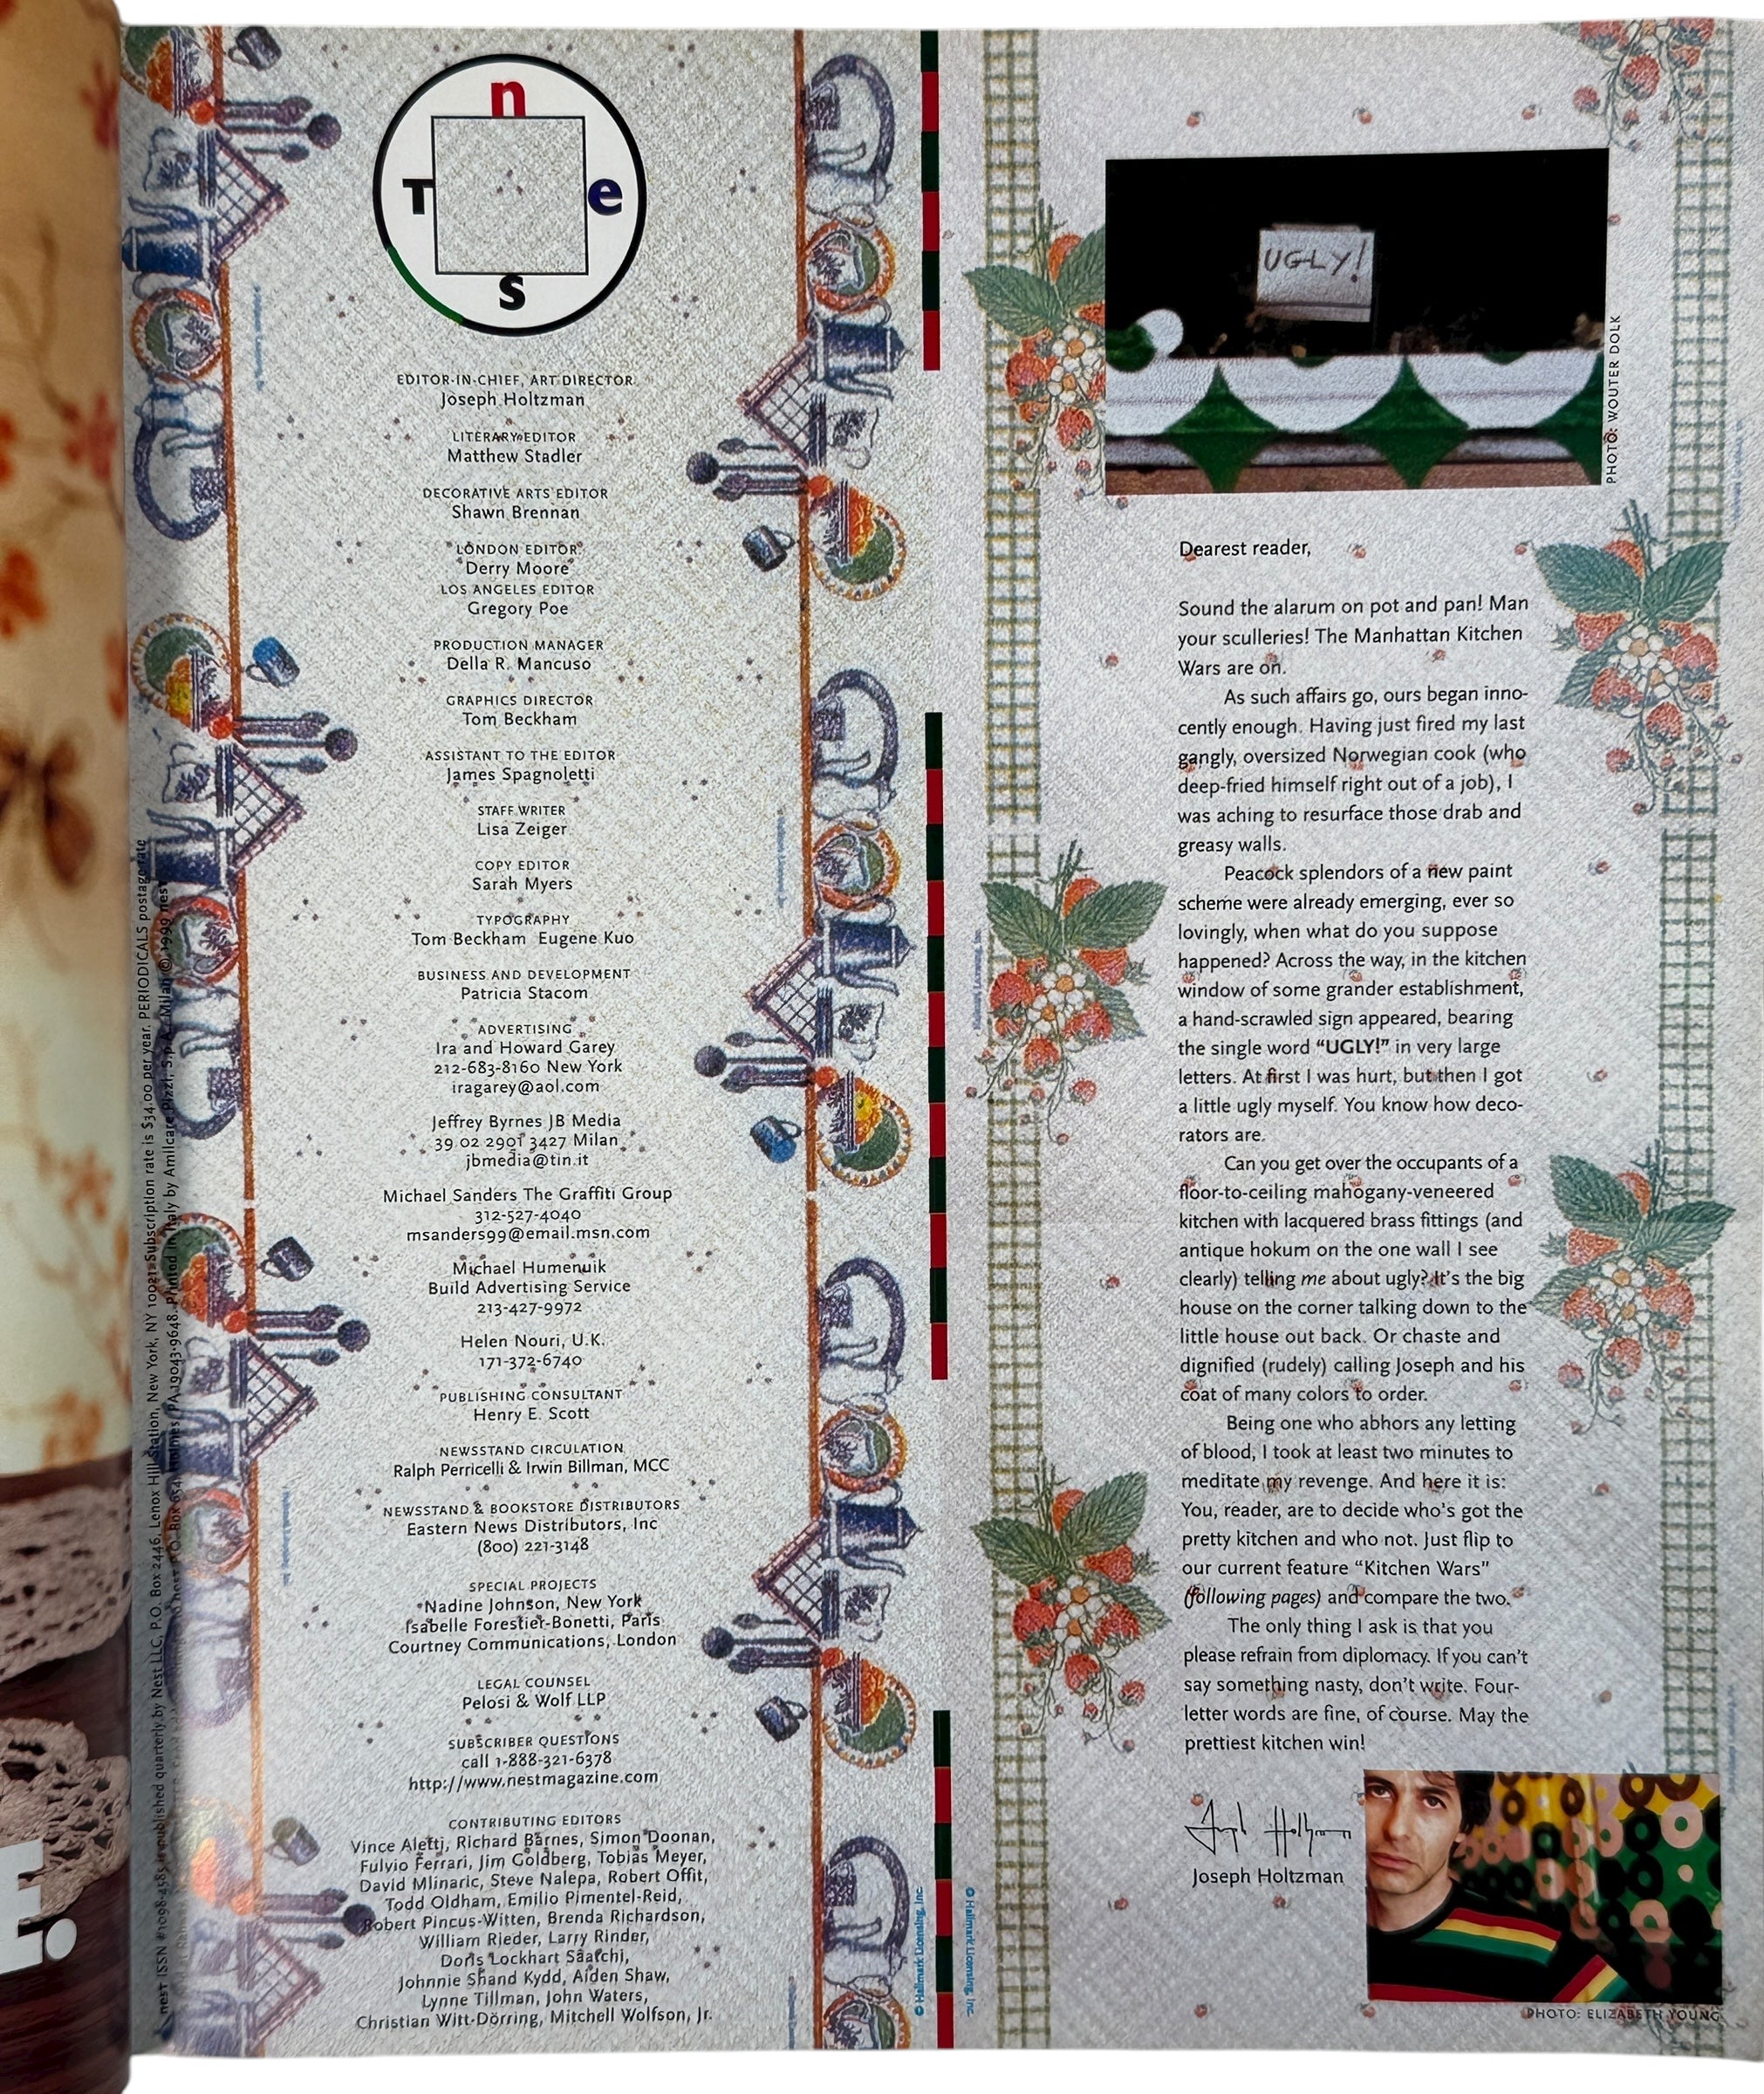 n
T e
s
EDITOR-IN-CHIEF, ART DIRECTOR
Joseph Holtzman
LITERARY EDITOR
Matthew Stadler
DECORATIVE ARTS EDITOR
Shawn Brennan
LONDON EDITOR
Derry Moore
LOS ANGELES EDITOR
Gregory Poe
PRODUCTION MANAGER
Della R. Mancuso
GRAPHICS DIRECTOR
Tom Beckham
ASSISTANT TO THE EDITOR
James Spagnoletti
STAFF WRITER
Lisa Zeiger
COPY EDITOR
Sarah Myers
TYPOGRAPHY
Tom Beckham Eugene Kuo
BUSINESS AND DEVELOPMENT
Patricia Stacom
ADVERTISING
Ira and Howard Garey
212-683-8160 New York
iragarey@aol.com
Jeffrey Byrnes JB Media
39 02 2901 3427 Milan
jbmedia@tin.it
Michael Sanders The Graffiti Group
312-527-4040
msanders99@email.msn.com
Michael Humenuik
Build Advertising Service
213-427-9972
Helen Nouri, U.K.
171-372-6740
PUBLISHING CONSULTANT
Henry E. Scott
NEWSSTAND CIRCULATION
Ralph Perricelli & Irwin Billman, MCC
NEWSSTAND & BOOKSTORE DISTRIBUTORS
Eastern News Distributors, Inc
(800) 221-3148
SPECIAL PROJECTS
Nadine Johnson, New York
Isabelle Forestier-Bonetti, Paris
Courtney Communications, London
LEGAL COUNSEL
Pelosi & Wolf LLP
SUBSCRIBER QUESTIONS
call 1-888-321-6378
http://www.nestmagazine.com
CONTRIBUTING EDITORS
Vince Aletti, Richard Barnes, Simon Doonan,
Fulvio Ferrari, Jim Goldberg, Tobias Meyer,
David Mlinaric, Steve Nalepa, Robert Offit,
Todd Oldham, Emilio Pimentel-Reid,
Robert Pincus-Witten, Brenda Richardson,
William Rieder, Larry Rinder,
Doris Lockhart Saatchi,
Johnnie Shand Kydd, Aiden Shaw,
Lynne Tillman, John Waters,
Christian Witt-Dörring, Mitchell Wolfson, Jr.
nest ISSN #1098-4585 is published quarterly by Nest LLC, P.O. Box 2446, Lenox Hill Station, New York, NY 10021. Subscription rate is $34.00 per year. PERIODICALS postage rate
nest P.O. Box Holmes, PA 19043-9648. Printed in Italy by Amilcare Pizzi, S.p.A., Milan © 1999 nest
© Hallmark Licensing, Inc.
© Hallmark Licensing, Inc.
UGLY!
PHOTO: WOUTER DOLK
Dearest reader,
Sound the alarum on pot and pan! Man
your sculleries! The Manhattan Kitchen
Wars are on.
As such affairs go, ours began inno-
cently enough. Having just fired my last
gangly, oversized Norwegian cook (who
deep-fried himself right out of a job), I
was aching to resurface those drab and
greasy walls.
Peacock splendors of a new paint
scheme were already emerging, ever so
lovingly, when what do you suppose
happened? Across the way, in the kitchen
window of some grander establishment,
a hand-scrawled sign appeared, bearing
the single word “UGLY!” in very large
letters. At first I was hurt, but then I got
a little ugly myself. You know how deco-
rators are.
Can you get over the occupants of a
floor-to-ceiling mahogany-veneered
kitchen with lacquered brass fittings (and
antique hokum on the one wall I see
clearly) telling me about ugly? It’s the big
house on the corner talking down to the
little house out back. Or chaste and
dignified (rudely) calling Joseph and his
coat of many colors to order.
Being one who abhors any letting
of blood, I took at least two minutes to
meditate my revenge. And here it is:
You, reader, are to decide who’s got the
pretty kitchen and who not. Just flip to
our current feature “Kitchen Wars”
(following pages) and compare the two.
The only thing I ask is that you
please refrain from diplomacy. If you can’t
say something nasty, don’t write. Four-
letter words are fine, of course. May the
prettiest kitchen win!
Joseph Holtzman
Joseph Holtzman
PHOTO: ELIZABETH YOUNG